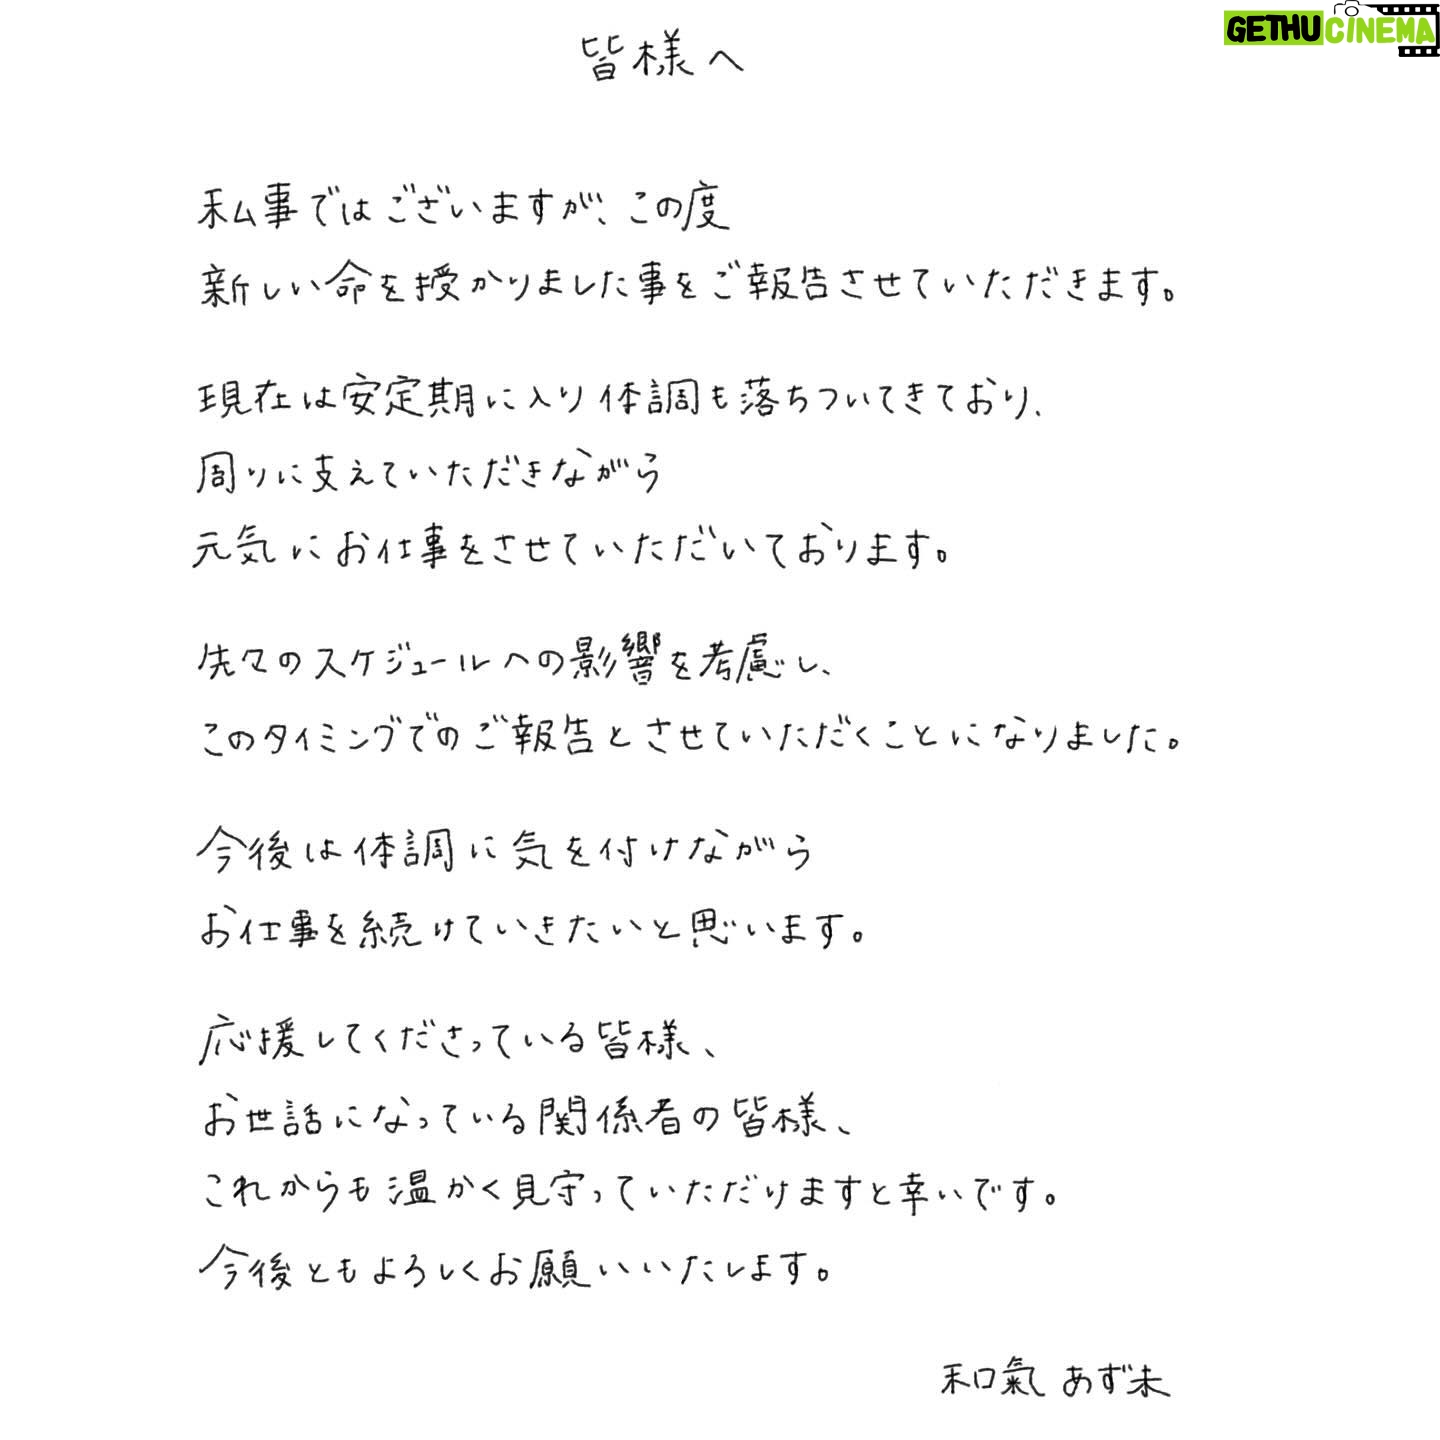 GETHUCINEMA
皆様へ
私事ではございますが、この度
新しい命を授かりました事をご報告させていただきます。
現在は安定期に入り体調も落ちついてきており、
周りに支えていただきながら
元気にお仕事をさせていただいております。
先々のスケジュールへの影響を考慮し、
このタイミングでのご報告とさせていただくことになりました。
今後は体調に気を付けながら
お仕事を続けていきたいと思います。
応援してくださっている皆様、
お世話になっている関係者の皆様、
これからも温かく見守っていただけますと幸いです。
今後ともよろしくお願いいたします。
和氣 あず未